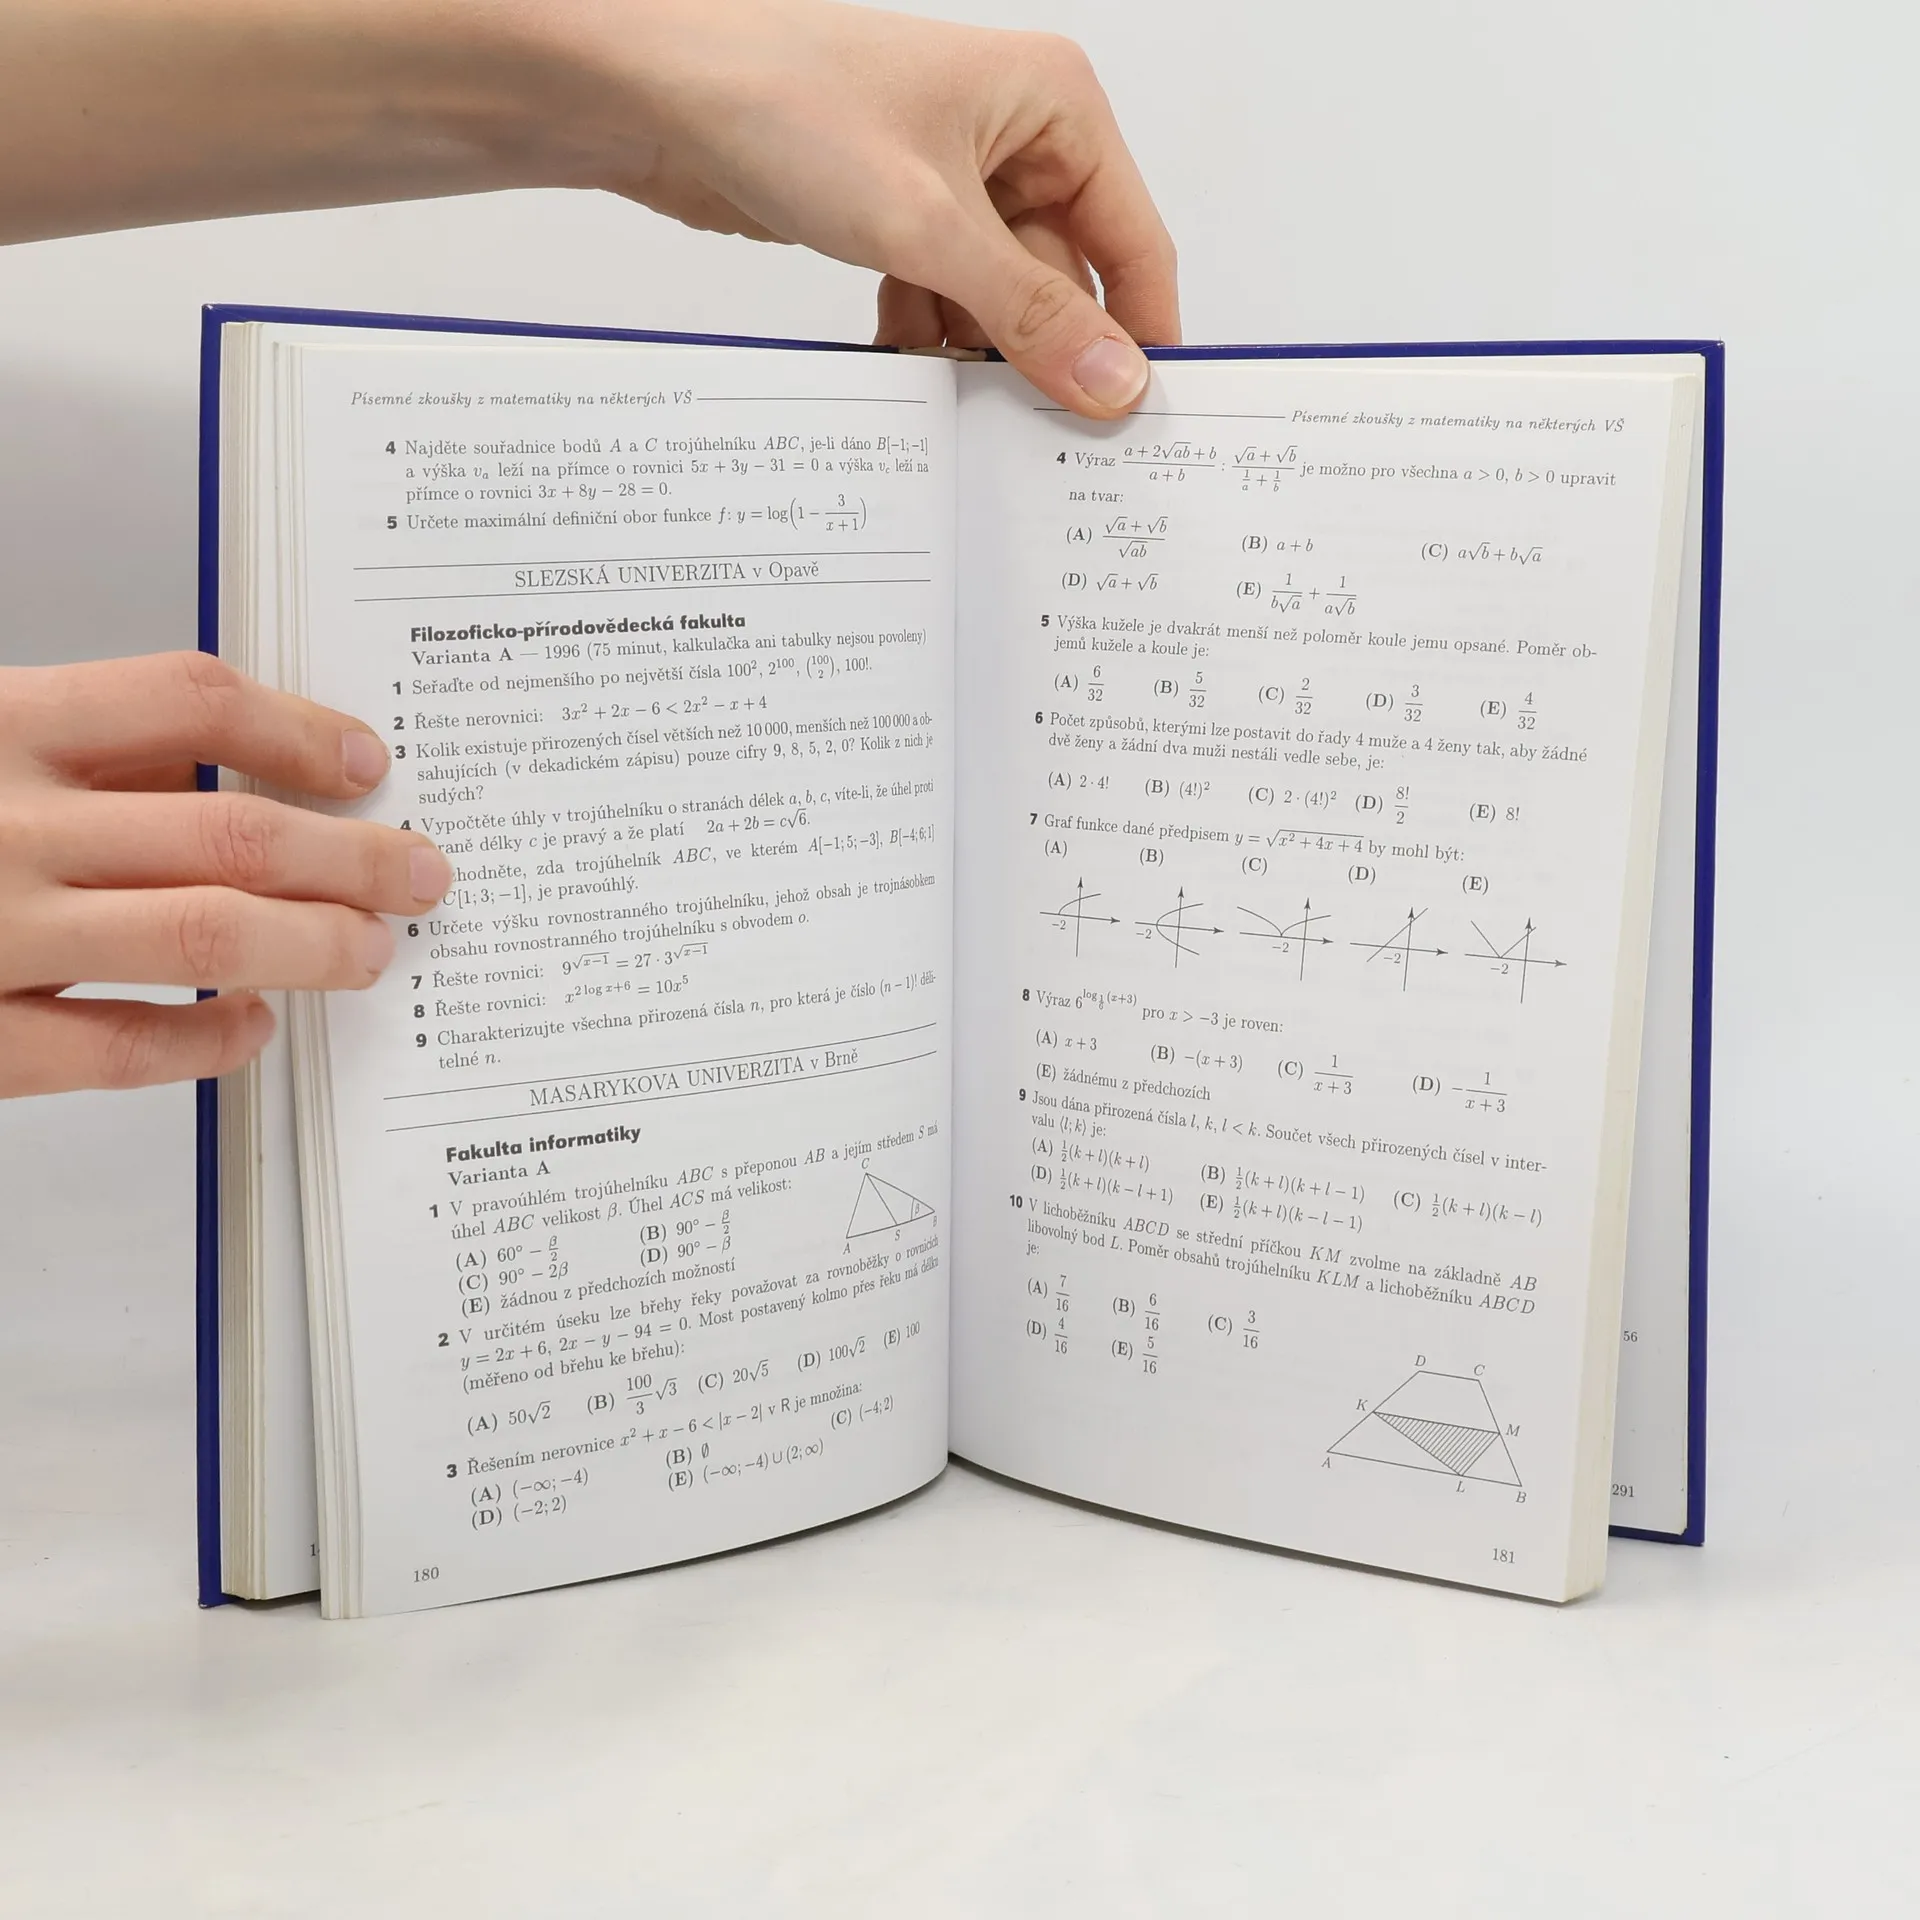 Písemné zkoušky z matematiky na některých VŠ
4 Najděte souřadnice bodů A a C trojúhelníku ABC, je-li dáno B[−1;−1]
a výška vₐ leží na přímce o rovnici 5x + 3y − 31 = 0 a výška v_c leží na
přímce o rovnici 3x + 8y − 28 = 0.
5 Určete maximální definiční obor funkce f: y = log(1 − 3/(x+1))
SLEZSKÁ UNIVERZITA v Opavě
Filozoficko-přírodovědecká fakulta
Varianta A — 1996 (75 minut, kalkulačka ani tabulky nejsou povoleny)
1 Seřaďte od nejmenšího po největší čísla 100², 2¹⁰⁰, (100 2), 100!.
2 Řešte nerovnici: 3x² + 2x − 6 < 2x² − x + 4
3 Kolik existuje přirozených čísel větších než 10 000, menších než 100 000 a ob-
sahujících (v dekadickém zápisu) pouze cifry 9, 8, 5, 2, 0? Kolik z nich je
sudých?
4 Vypočtěte úhly v trojúhelníku o stranách délek a, b, c, víte-li, že úhel proti
raně délky c je pravý a že platí 2a + 2b = c√6.
hodněte, zda trojúhelník ABC, ve kterém A[−1; 5; −3], B[−4; 6; 1]
C[1; 3; −1], je pravoúhlý.
6 Určete výšku rovnostranného trojúhelníku, jehož obsah je trojnásobkem
obsahu rovnostranného trojúhelníku s obvodem o.
7 Řešte rovnici: 9^√(x−1) = 27 · 3^√(x−1)
8 Řešte rovnici: x^(2 log x+6) = 10x⁵
9 Charakterizujte všechna přirozená čísla n, pro která je číslo (n − 1)! děli-
telné n.
MASARYKOVA UNIVERZITA v Brně
Fakulta informatiky
Varianta A
1 V pravoúhlém trojúhelníku ABC s přeponou AB a jejím středem S má
úhel ABC velikost β. Úhel ACS má velikost:
(A) 60° − β/2 (B) 90° − β/2
(C) 90° − 2β (D) 90° − β
(E) žádnou z předchozích možností
C
β
A S B
2 V určitém úseku lze břehy řeky považovat za rovnoběžky o rovnicích
y = 2x + 6, 2x − y − 94 = 0. Most postavený kolmo přes řeku má délku
(měřeno od břehu ke břehu):
(A) 50√2 (B) 100/3 √3 (C) 20√5 (D) 100√2 (E) 100
3 Řešením nerovnice x² + x − 6 < |x − 2| v R je množina:
(A) (−∞; −4) (B) ∅ (C) (−4; 2)
(D) (−2; 2) (E) (−∞; −4) ∪ (2; ∞)
180
Písemné zkoušky z matematiky na některých VŠ
4 Výraz (a + 2√ab + b)/(a + b) : (√a + √b)/(1/a + 1/b) je možno pro všechna a > 0, b > 0 upravit
na tvar:
(A) (√a + √b)/√ab (B) a + b (C) a√b + b√a
(D) √a + √b (E) 1/(b√a) + 1/(a√b)
5 Výška kužele je dvakrát menší než poloměr koule jemu opsané. Poměr ob-
jemů kužele a koule je:
(A) 6/32 (B) 5/32 (C) 2/32 (D) 3/32 (E) 4/32
6 Počet způsobů, kterými lze postavit do řady 4 muže a 4 ženy tak, aby žádné
dvě ženy a žádní dva muži nestáli vedle sebe, je:
(A) 2 · 4! (B) (4!)² (C) 2 · (4!)² (D) 8!/2 (E) 8!
7 Graf funkce dané předpisem y = √(x² + 4x + 4) by mohl být:
(A) (B) (C) (D) (E)
−2 −2 −2 −2 −2
8 Výraz 6^(log_(1/6) (x+3)) pro x > −3 je roven:
(A) x + 3 (B) −(x + 3) (C) 1/(x + 3) (D) −1/(x + 3)
(E) žádnému z předchozích
9 Jsou dána přirozená čísla l, k, l < k. Součet všech přirozených čísel v inter-
valu ⟨l; k⟩ je:
(A) ½(k + l)(k + l) (B) ½(k + l)(k + l − 1) (C) ½(k + l)(k − l)
(D) ½(k + l)(k − l + 1) (E) ½(k + l)(k − l − 1)
10 V lichoběžníku ABCD se střední příčkou KM zvolme na základně AB
libovolný bod L. Poměr obsahů trojúhelníku KLM a lichoběžníku ABCD
je:
(A) 7/16 (B) 6/16 (C) 3/16
(D) 4/16 (E) 5/16
D C
K M
A L B
181
56
291